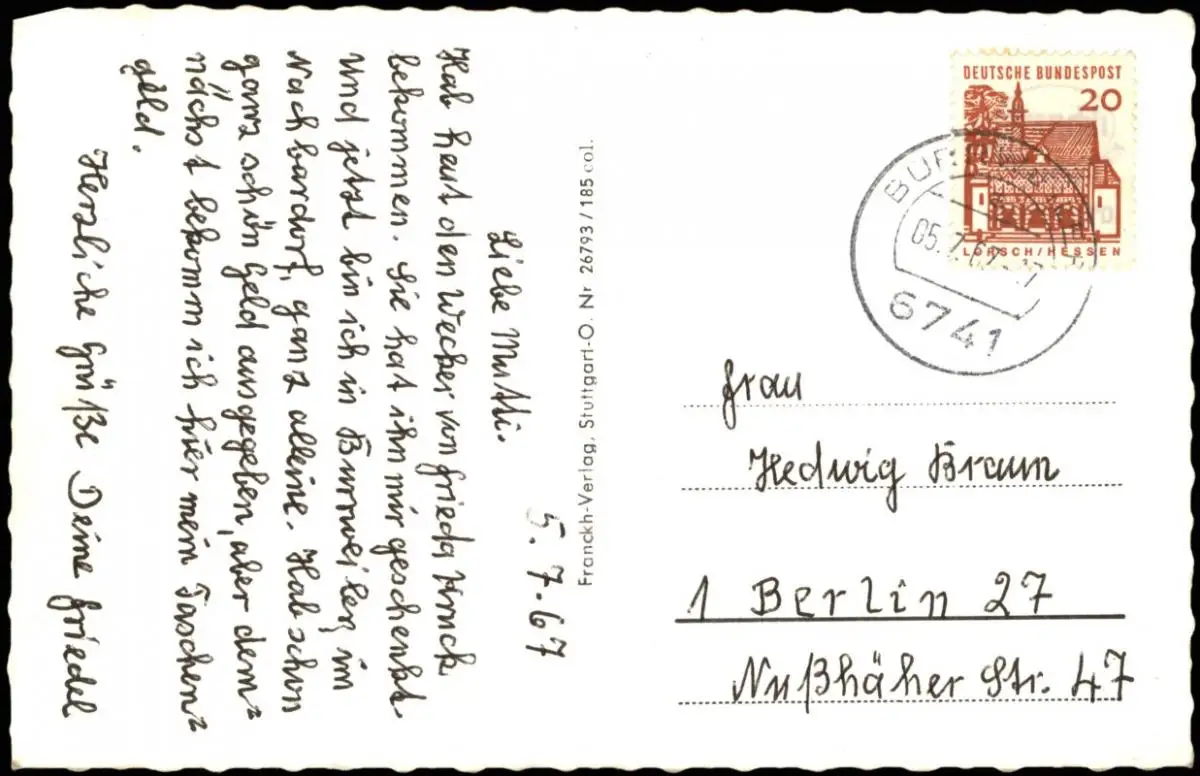 5. 7. 67
Liebe Mutti.
Hab heut den Wecker von Frieda
bekommen. Sie hat ihn mir geschenkt.
Und jetzt bin ich in Burrweiler, im
Nachbardorf, ganz alleine. Hab schon
ganz schön Geld ausgegeben, aber dem=
nächst bekomm ich hier mein Taschen=
geld.
Herzliche Grüße Deine Friedel
Franckh-Verlag, Stuttgart-O. Nr 26793/185 col.
DEUTSCHE BUNDESPOST
20
LORSCH/HESSEN
05.7.67
6741
Frau
Hedwig Braun
1 Berlin 27
Nußhäher Str. 47